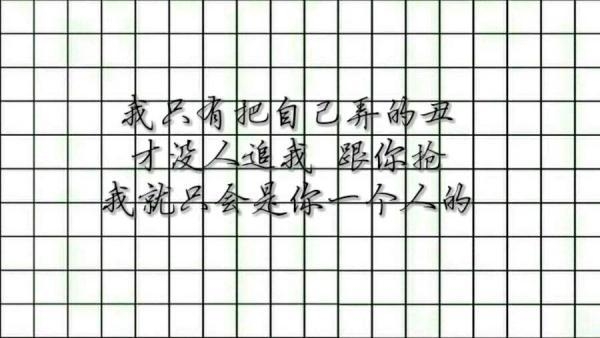 我只有把自己弄的丑
才没人追我 跟你抢
我就只会是你一个人的